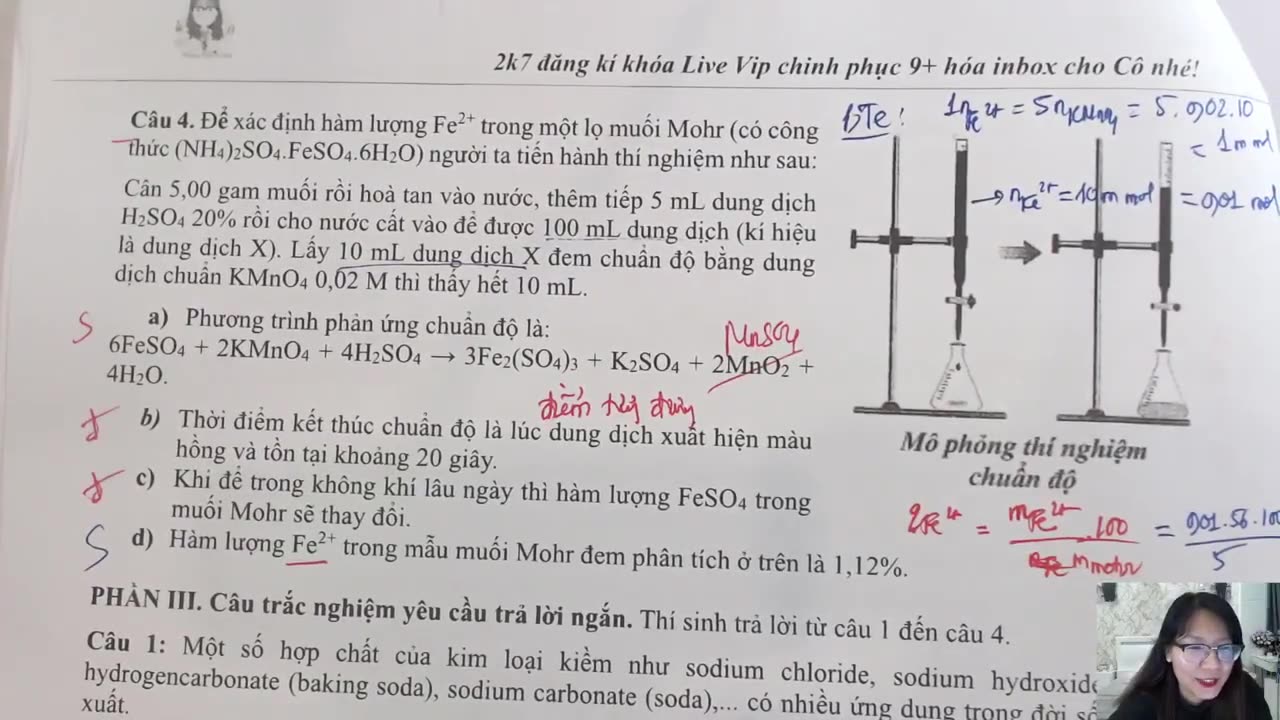 2k7 đăng kí khóa Live Vip chinh phục 9+ hóa inbox cho Cô nhé!
Câu 4. Để xác định hàm lượng Fe²⁺ trong một lọ muối Mohr (có công
thức (NH₄)₂SO₄.FeSO₄.6H₂O) người ta tiến hành thí nghiệm như sau:
Cân 5,00 gam muối rồi hoà tan vào nước, thêm tiếp 5 mL dung dịch
H₂SO₄ 20% rồi cho nước cất vào để được 100 mL dung dịch (kí hiệu
là dung dịch X). Lấy 10 mL dung dịch X đem chuẩn độ bằng dung
dịch chuẩn KMnO₄ 0,02 M thì thấy hết 10 mL.
S
a) Phương trình phản ứng chuẩn độ là:
MnSO₄
6FeSO₄ + 2KMnO₄ + 4H₂SO₄ → 3Fe₂(SO₄)₃ + K₂SO₄ + 2MnO₂ +
4H₂O.
điểm
b) Thời điểm kết thúc chuẩn độ là lúc dung dịch xuất hiện màu
hồng và tồn tại khoảng 20 giây.
c) Khi để trong không khí lâu ngày thì hàm lượng FeSO₄ trong
muối Mohr sẽ thay đổi.
S
d) Hàm lượng Fe²⁺ trong mẫu muối Mohr đem phân tích ở trên là 1,12%.
BTe:
1nFe²⁺ = 5nKMnO₄ = 5.0,02.10
= 1 mmol
→ nFe²⁺ = 10 mmol = 0,01 mol
Mô phỏng thí nghiệm
chuẩn độ
%Fe²⁺ = mFe²⁺ .100 / m mohr = 0,01.56.100 / 5
PHẦN III. Câu trắc nghiệm yêu cầu trả lời ngắn. Thí sinh trả lời từ câu 1 đến câu 4.
Câu 1: Một số hợp chất của kim loại kiềm như sodium chloride, sodium hydroxide
hydrogencarbonate (baking soda), sodium carbonate (soda),... có nhiều ứng dụng trong đời số
xuất.